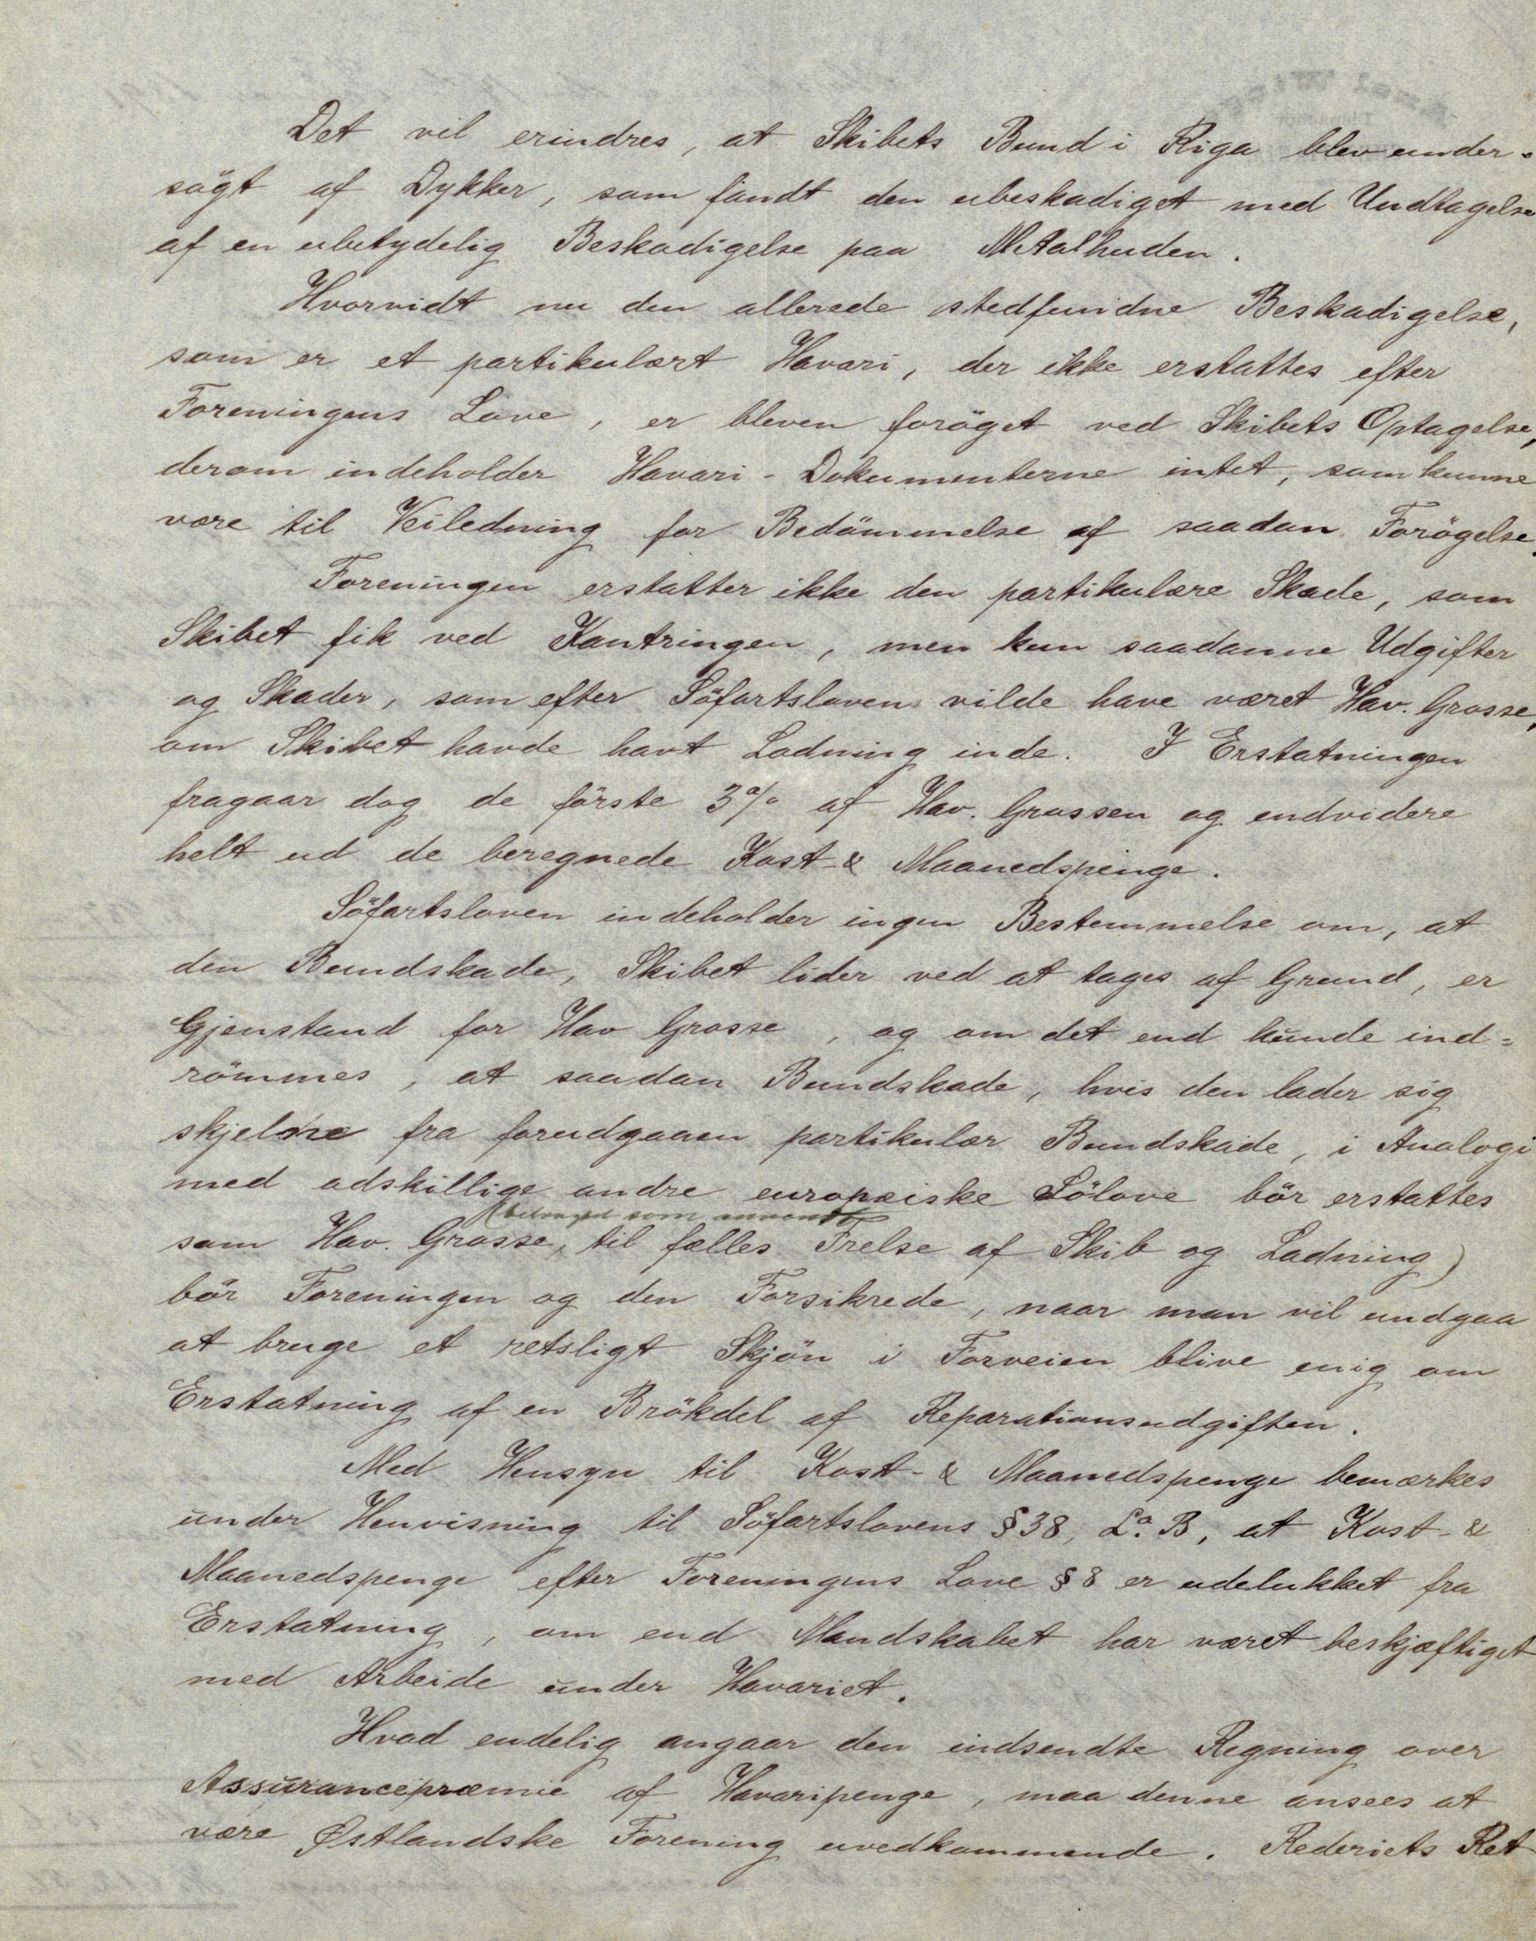 Det vil erindres, at Skibets Bund i Riga blev under-
sögt af Dykker, som fandt den ubeskadiget med Undtagelse
af en ubetydelig Beskadigelse paa Metalhuden.
Hvorvidt nu den allerede stedfundne Beskadigelse,
som er et partikulært Havari, der ikke erstattes efter
Foreningens Love, er bleven foröget ved Skibets Optagelse,
derom indeholder Havari-Dokumenterne intet, som kunne
være til Veiledning for Bedömmelse af saadan Forögelse.
Foreningen erstatter ikke den partikulære Skade, som
Skibet fik ved Kantringen, men kun saadanne Udgifter
og Skader, som efter Söfartsloven vilde have været Hav. Grosse,
om Skibet havde havt Ladning inde. I Erstatningen
fragaar dog de förste 3% af Hav. Grossen og endvidere
helt ud de beregnede Kost- & Maanedspenge.
Söfartsloven indeholder ingen Bestemmelse om, at
den Bundskade, Skibet lider ved at tages af Grund, er
Gjenstand for Hav Grosse, og om det end kunde ind=
römmes, at saadan Bundskade, hvis den lader sig
skjelne fra forudgaaen partikulær Bundskade, i Analogi
med adskillige andre europæiske Sölove bör erstattes
(betragtet som anvendt
som Hav. Grosse, til fælles Frelse af Skib og Ladning)
bör Foreningen og den Forsikrede, naar man vil undgaa
at bruge et retsligt Skjön i Forveien blive enig om
Erstatning af en Brökdel af Reparationsudgiften.
Med Hensyn til Kost- & Maanedspenge bemærkes
under Henvisning til Söfartslovens § 38, La. B, at Kost- &
Maanedspenge efter Foreningens Love § 8 er udelukket fra
Erstatning, om end Mandskabet har været beskjæftiget
med Arbeide under Havariet.
Hvad endelig angaar den indsendte Regning over
Assurancepræmie af Havaripenge, maa denne ansees at
være Østlandske Forening uvedkommende. Rederiets Ret